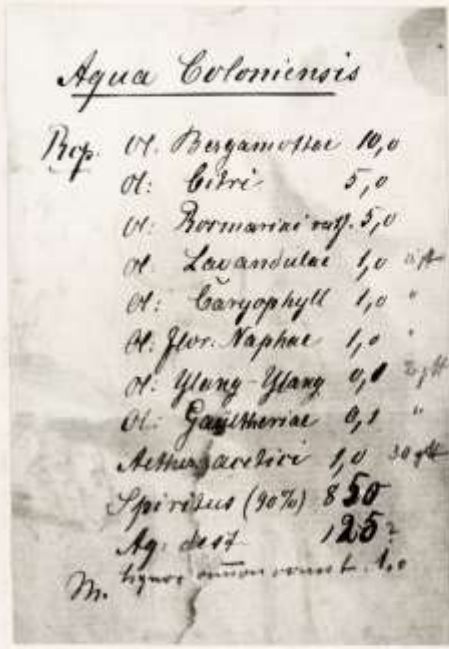 Aqua Coloniensis
Rcp. Ol. Bergamottae 10,0
Ol: Citri 5,0
Ol: Rosmarini 5,0
Ol: Lavandulae 1,0
Ol: Caryophyll 1,0 "
Ol: flor: Naphae 1,0 "
Ol: Ylang-Ylang 0,1
Ol: Gaultheriae 0,1 "
Aether acetici 1,0 30 gtt
Spiritus (90%) 850
Aq: dest. 125
M.